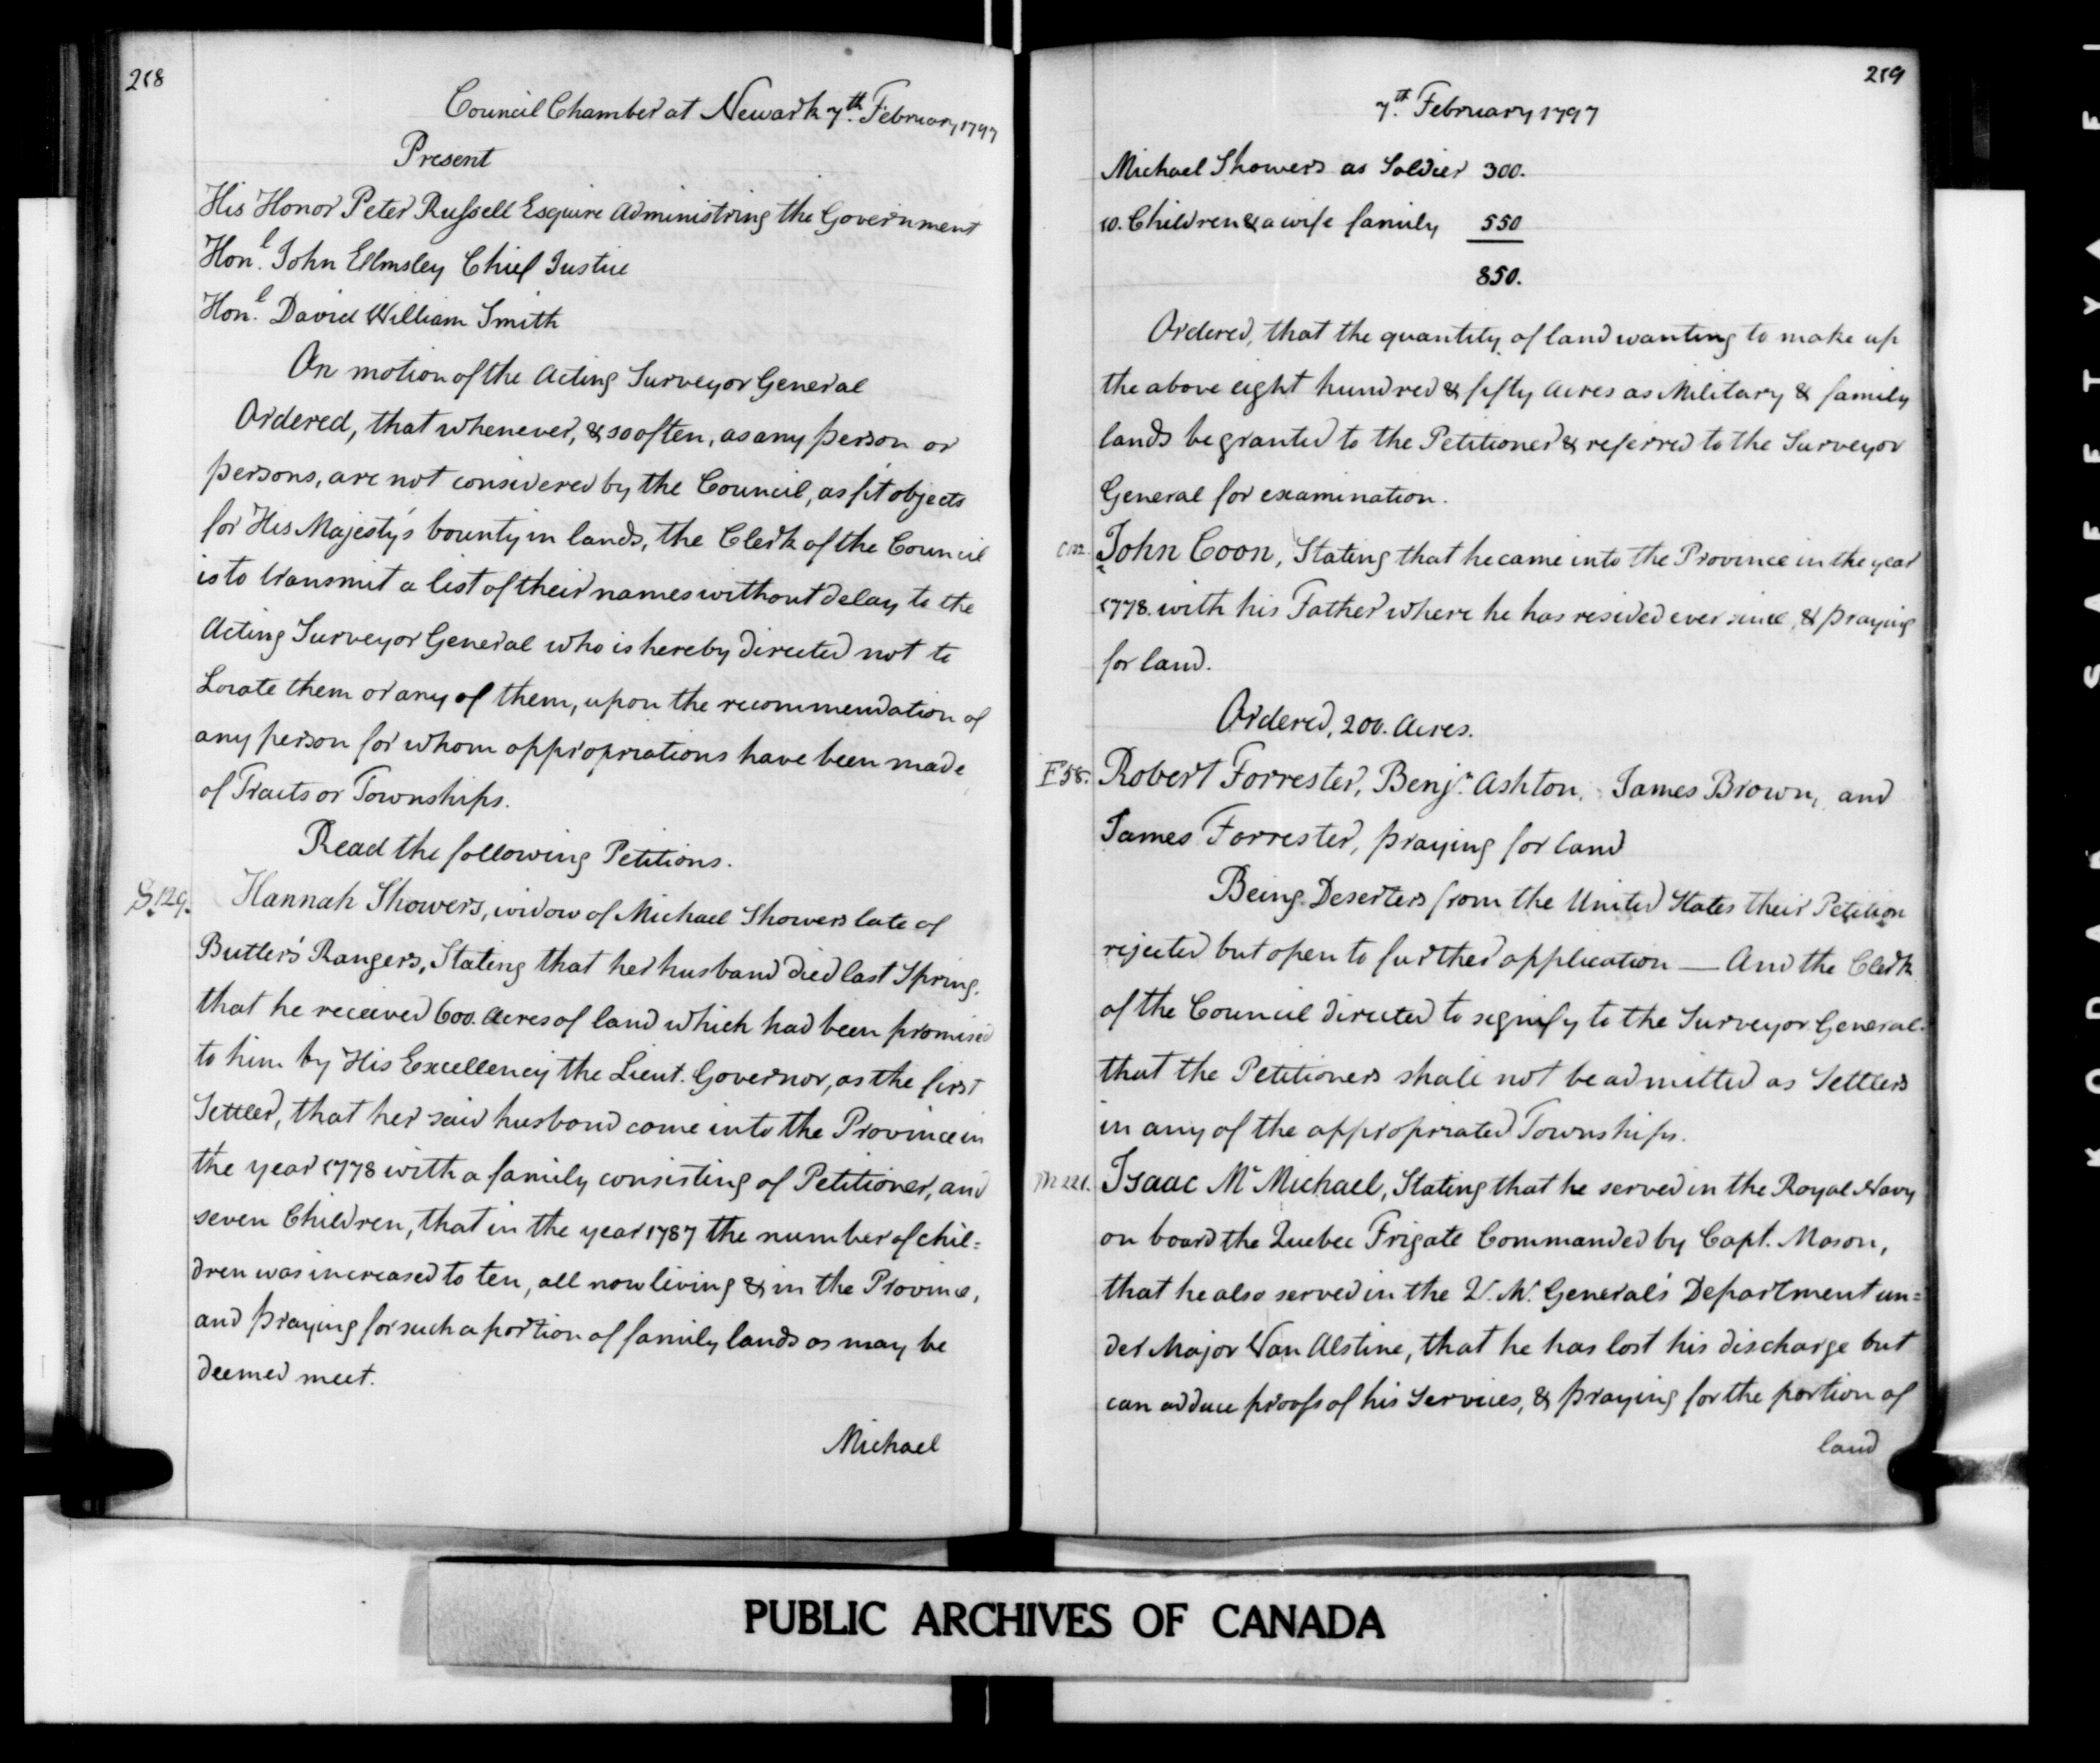 218
Council Chamber at Newark 7th. February 1797
Present
His Honor Peter Russell Esquire Administring the Government
Honl. John Elmsley Chief Justice
Honl. David William Smith
On motion of the Acting Surveyor General
Ordered, that whenever, & so often, as any person or
persons, are not considered by the Council, as fit objects
for His Majesty's bounty in lands, the Clerk of the Council
is to transmit a list of their names without delay to the
Acting Surveyor General who is hereby directed not to
Locate them or any of them, upon the recommendation of
any person for whom appropriations have been made
of Tracts or Townships.
Read the following Petitions.
S.129. Hannah Showers, widow of Michael Showers late of
Butler's Rangers, Stating that her husband died last Spring.
that he received 600. Acres of land which had been promised
to him by His Excellency the Lieut. Governor, as the first
Settler, that her said husband came into the Province in
the year 1778 with a family consisting of Petitioner, and
seven Children, that in the year 1787 the number of chil=
dren was increased to ten, all now living & in the Province,
and praying for such a portion of family lands as may be
deemed meet.
Michael
219
7th. February 1797
Michael Showers as Soldier 300.
10. Children & a wife family 550
850.
Ordered, that the quantity of land wanting to make up
the above eight hundred & fifty Acres as Military & family
lands be granted to the Petitioner & referred to the Surveyor
General for examination.
John Coon, Stating that he came into the Province in the year
1778. with his Father where he has resided ever since, & praying
for land.
Ordered, 200. Acres.
F58. Robert Forrester, Benjn. Ashton, James Brown, and
James Forrester, praying for land
Being Deserters from the United States their Petition
rejected but open to further application — And the Clerk
of the Council directed to signify to the Surveyor General
that the Petitioners shall not be admitted as Settlers
in any of the appropriated Townships.
M221. Isaac Mc Michael, Stating that he served in the Royal Navy
on board the Quebec Frigate Commanded by Capt. Mason,
that he also served in the Q. M. General's Department un=
der Major Van Alstine, that he has lost his discharge but
can adduce proofs of his Services, & praying for the portion of
land
PUBLIC ARCHIVES OF CANADA